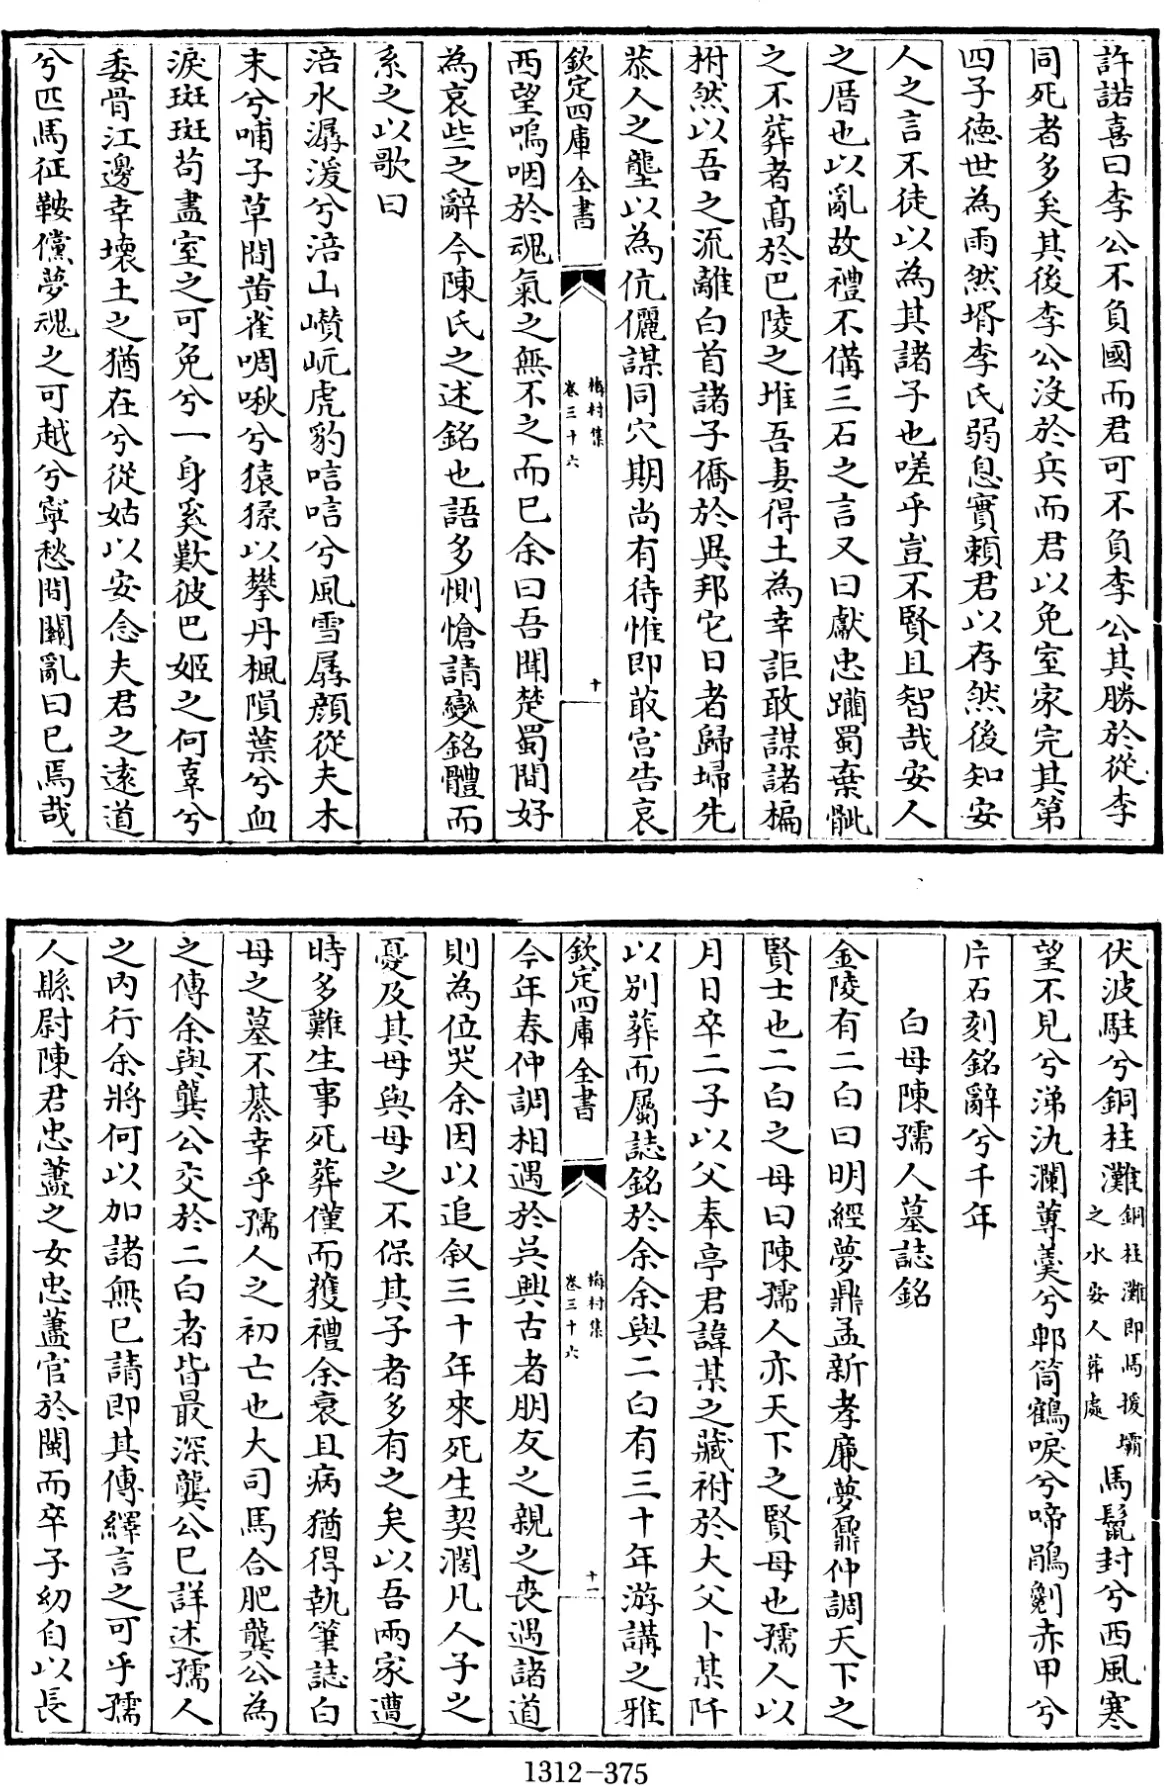 許諾喜曰李公不負國而君可不負李公其勝於從李
同死者多矣其後李公沒於兵而君以免室家完其第
四子德世為雨然壻李氏弱息實賴君以存然後知安
人之言不徒以為其諸子也嗟乎豈不賢且智哉安人
之厝也以亂故禮不備三石之言又曰獻忠躪蜀棄骴
之不葬者髙於巴陵之堆吾妻得土為幸詎敢謀諸楄
柎然以吾之流離白首諸子僑於異邦它日者歸埽先
恭人之壟以為伉儷謀同穴期尚有待惟即菆宫告哀
欽定四庫全書
梅村集
卷三十六
十
西望嗚咽於魂氣之無不之而已余曰吾聞楚蜀間好
為哀些之辭今陳氏之述銘也語多惻愴請變銘體而
系之以歌曰
涪水潺湲兮涪山巑岏虎豹唁唁兮風雪孱顔從夫木
末兮哺子草間黄雀啁啾兮猿猱以攀丹楓隕葉兮血
淚斑斑苟盡室之可免兮一身奚歎彼巴姬之何辜兮
委骨江邊幸壤土之猶在兮從姑以安念夫君之遠道
兮匹馬征鞍儻夢魂之可越兮寧愁間關亂曰已焉哉
伏波駐兮銅柱灘銅柱灘即馬援壩之水安人葬處馬鬛封兮西風寒
望不見兮涕汍瀾蓴羮兮郫筒鶴唳兮啼鵑劖赤甲兮
片石刻銘辭兮千年
白母陳孺人墓誌銘
金陵有二白曰明經夢鼎孟新孝廉夢鼐仲調天下之
賢士也二白之母曰陳孺人亦天下之賢母也孺人以
月日卒二子以父奉亭君諱某之藏祔於大父卜某阡
以别葬而屬誌銘於余余與二白有三十年游講之雅
欽定四庫全書
梅村集
卷三十六
十一
今年春仲調相遇於吳興古者朋友之親之喪遇諸道
則為位哭余因以追叙三十年來死生契濶凡人子之
憂及其母與母之不保其子者多有之矣以吾兩家遭
時多難生事死葬僅而獲禮余衰且病猶得執筆誌白
母之墓不綦幸乎孺人之初亡也大司馬合肥龔公為
之傳余與龔公交於二白者皆最深龔公已詳述孺人
之内行余將何以加諸無已請即其傳繹言之可乎孺
人縣尉陳君忠藎之女忠藎官於閩而卒子幼自以長
1312-375